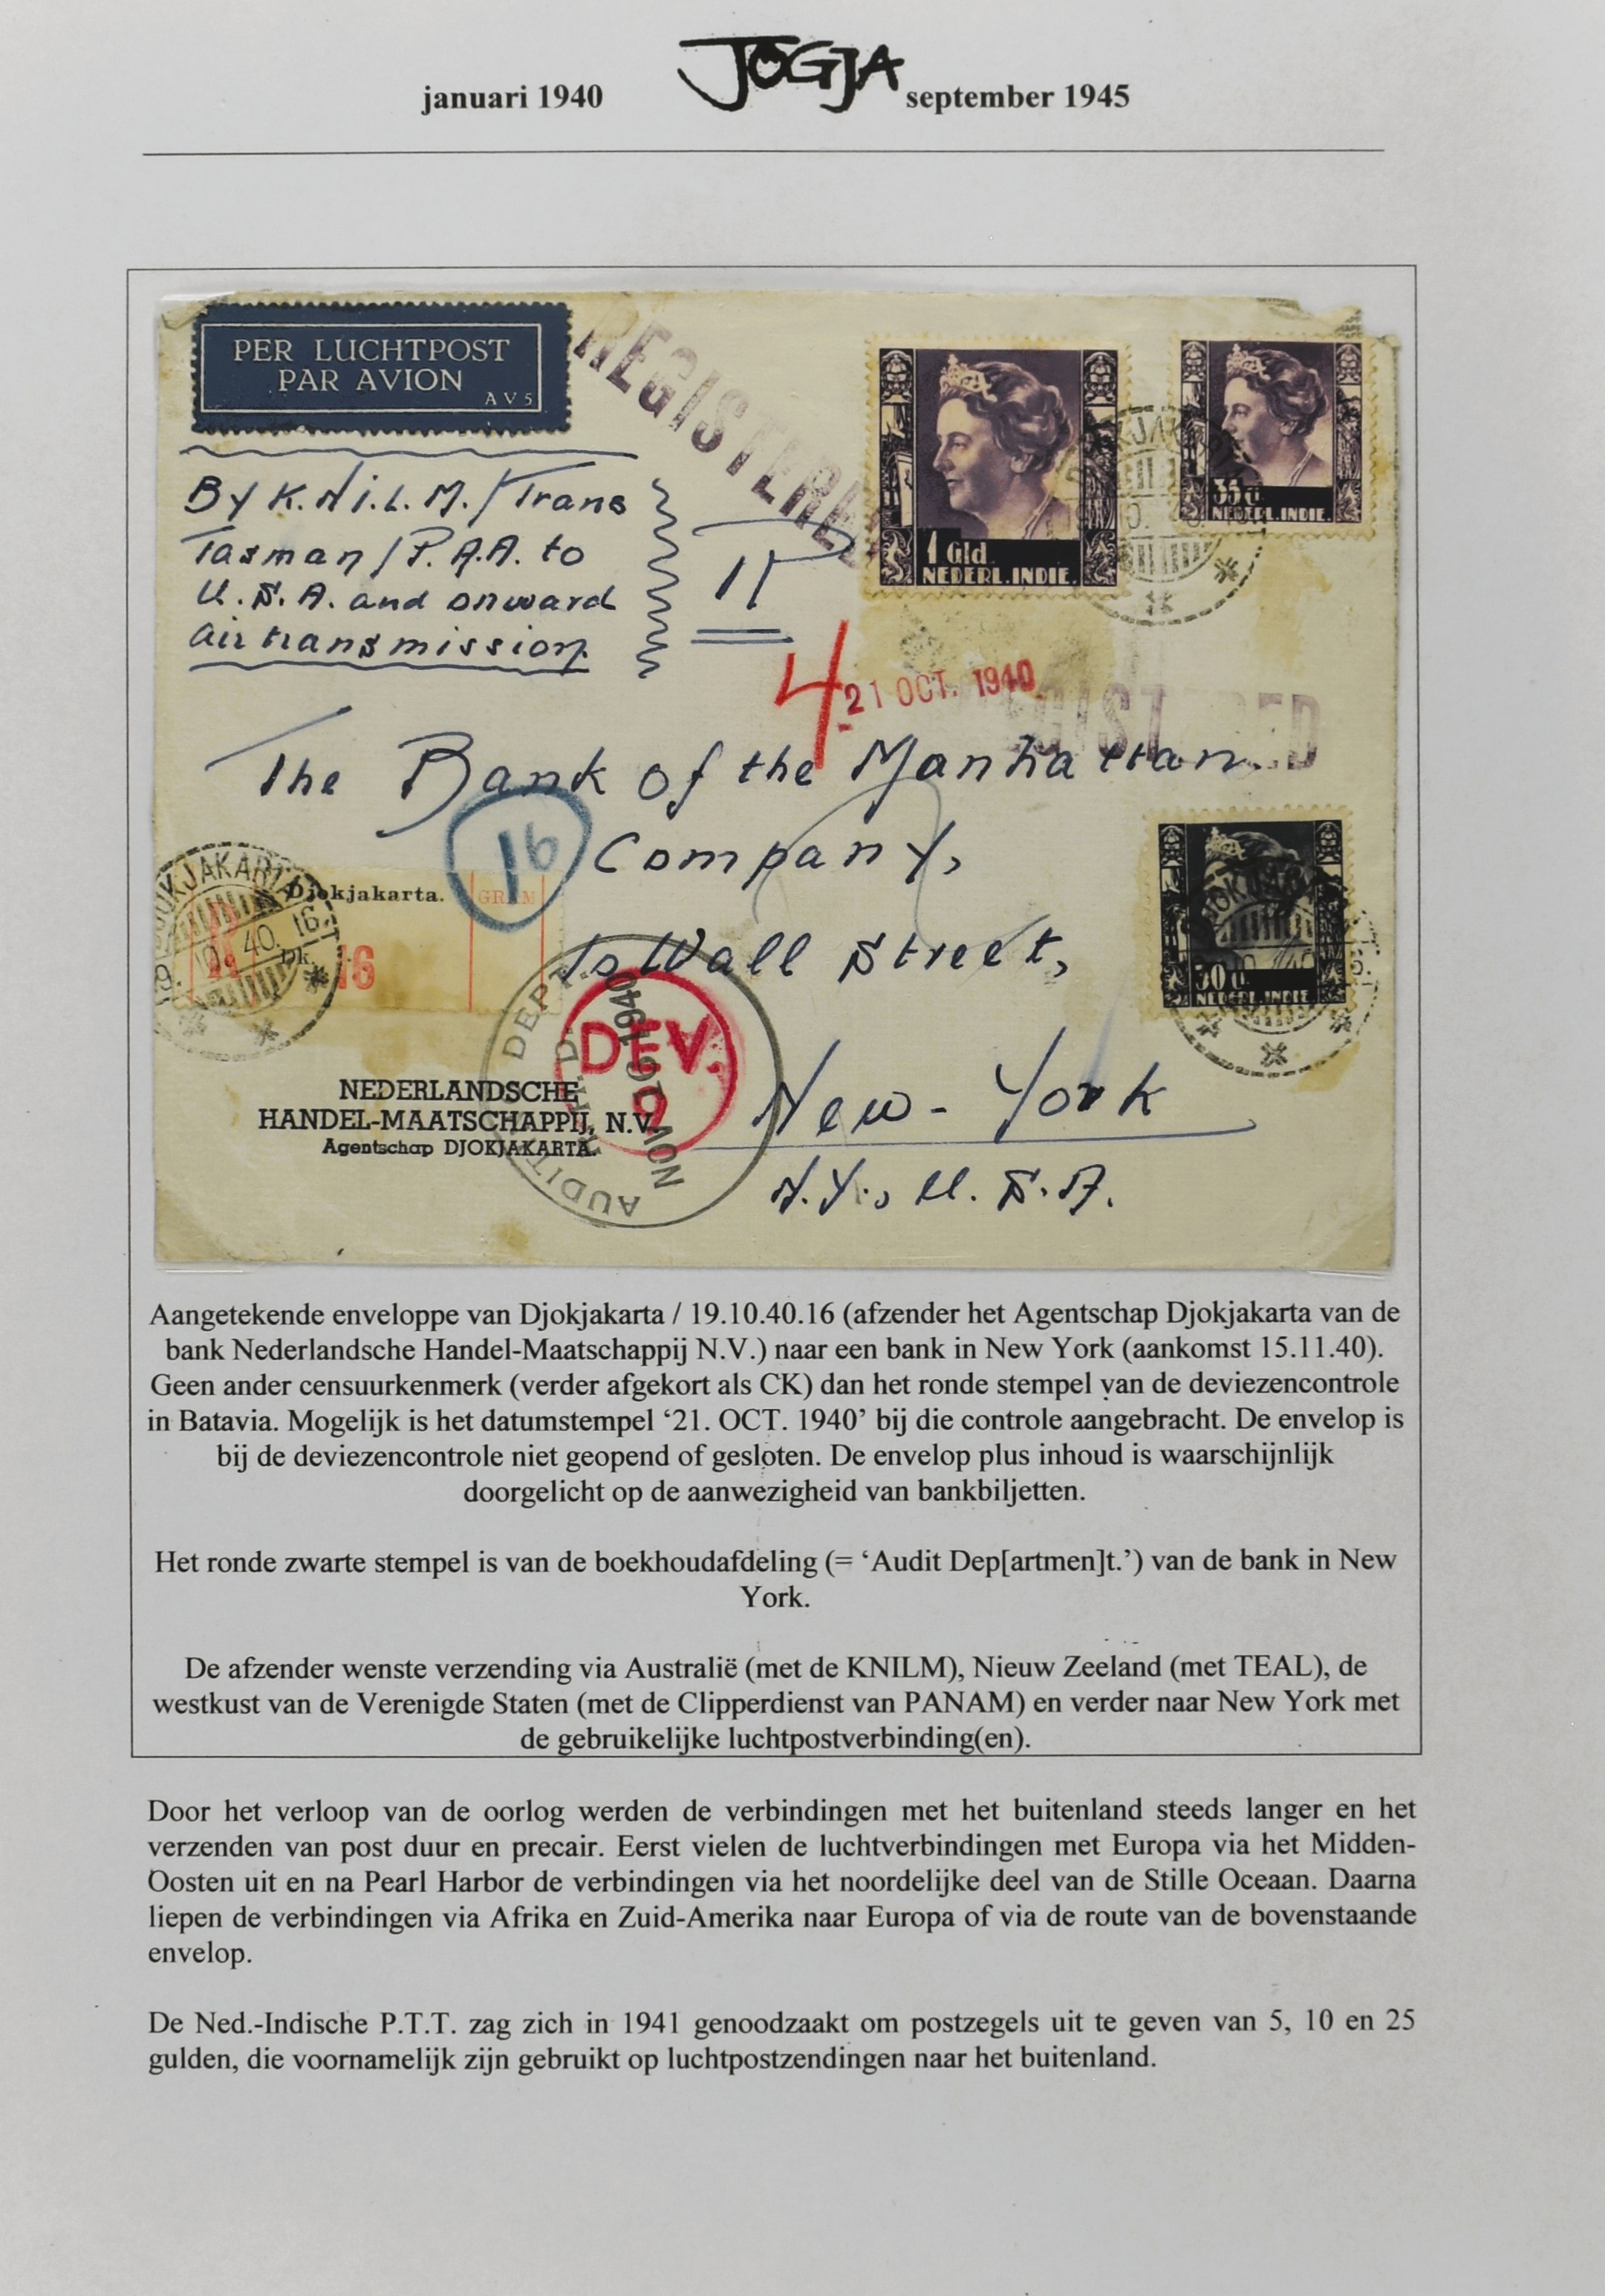 januari 1940 JOGJA september 1945
PER LUCHTPOST
PAR AVION
AV5
REGISTERED
By K.N.I.L.M./Trans
Tasman/P.A.A. to
U.S.A. and onward
airtransmission.
1 Gld
NEDERL.INDIE.
35 c
NEDERL.INDIE.
4
21 OCT. 1940
REGISTERED
The Bank of the Manhattan
Company,
16
Wall Street,
New-York
N.Y., U.S.A.
DJOKJAKARTA
19.10.40.16
Djokjakarta.
GRAM
Dk.
16
30 c
NEDERL.INDIE
AUDIT DEPT.
NOV 16 1940
DEV.
9
NEDERLANDSCHE
HANDEL-MAATSCHAPPIJ, N.V.
Agentschap DJOKJAKARTA.
Aangetekende enveloppe van Djokjakarta / 19.10.40.16 (afzender het Agentschap Djokjakarta van de
bank Nederlandsche Handel-Maatschappij N.V.) naar een bank in New York (aankomst 15.11.40).
Geen ander censuurkenmerk (verder afgekort als CK) dan het ronde stempel van de deviezencontrole
in Batavia. Mogelijk is het datumstempel ‘21. OCT. 1940’ bij die controle aangebracht. De envelop is
bij de deviezencontrole niet geopend of gesloten. De envelop plus inhoud is waarschijnlijk
doorgelicht op de aanwezigheid van bankbiljetten.
Het ronde zwarte stempel is van de boekhoudafdeling (= ‘Audit Dep[artmen]t.’) van de bank in New
York.
De afzender wenste verzending via Australië (met de KNILM), Nieuw Zeeland (met TEAL), de
westkust van de Verenigde Staten (met de Clipperdienst van PANAM) en verder naar New York met
de gebruikelijke luchtpostverbinding(en).
Door het verloop van de oorlog werden de verbindingen met het buitenland steeds langer en het
verzenden van post duur en precair. Eerst vielen de luchtverbindingen met Europa via het Midden-
Oosten uit en na Pearl Harbor de verbindingen via het noordelijke deel van de Stille Oceaan. Daarna
liepen de verbindingen via Afrika en Zuid-Amerika naar Europa of via de route van de bovenstaande
envelop.
De Ned.-Indische P.T.T. zag zich in 1941 genoodzaakt om postzegels uit te geven van 5, 10 en 25
gulden, die voornamelijk zijn gebruikt op luchtpostzendingen naar het buitenland.